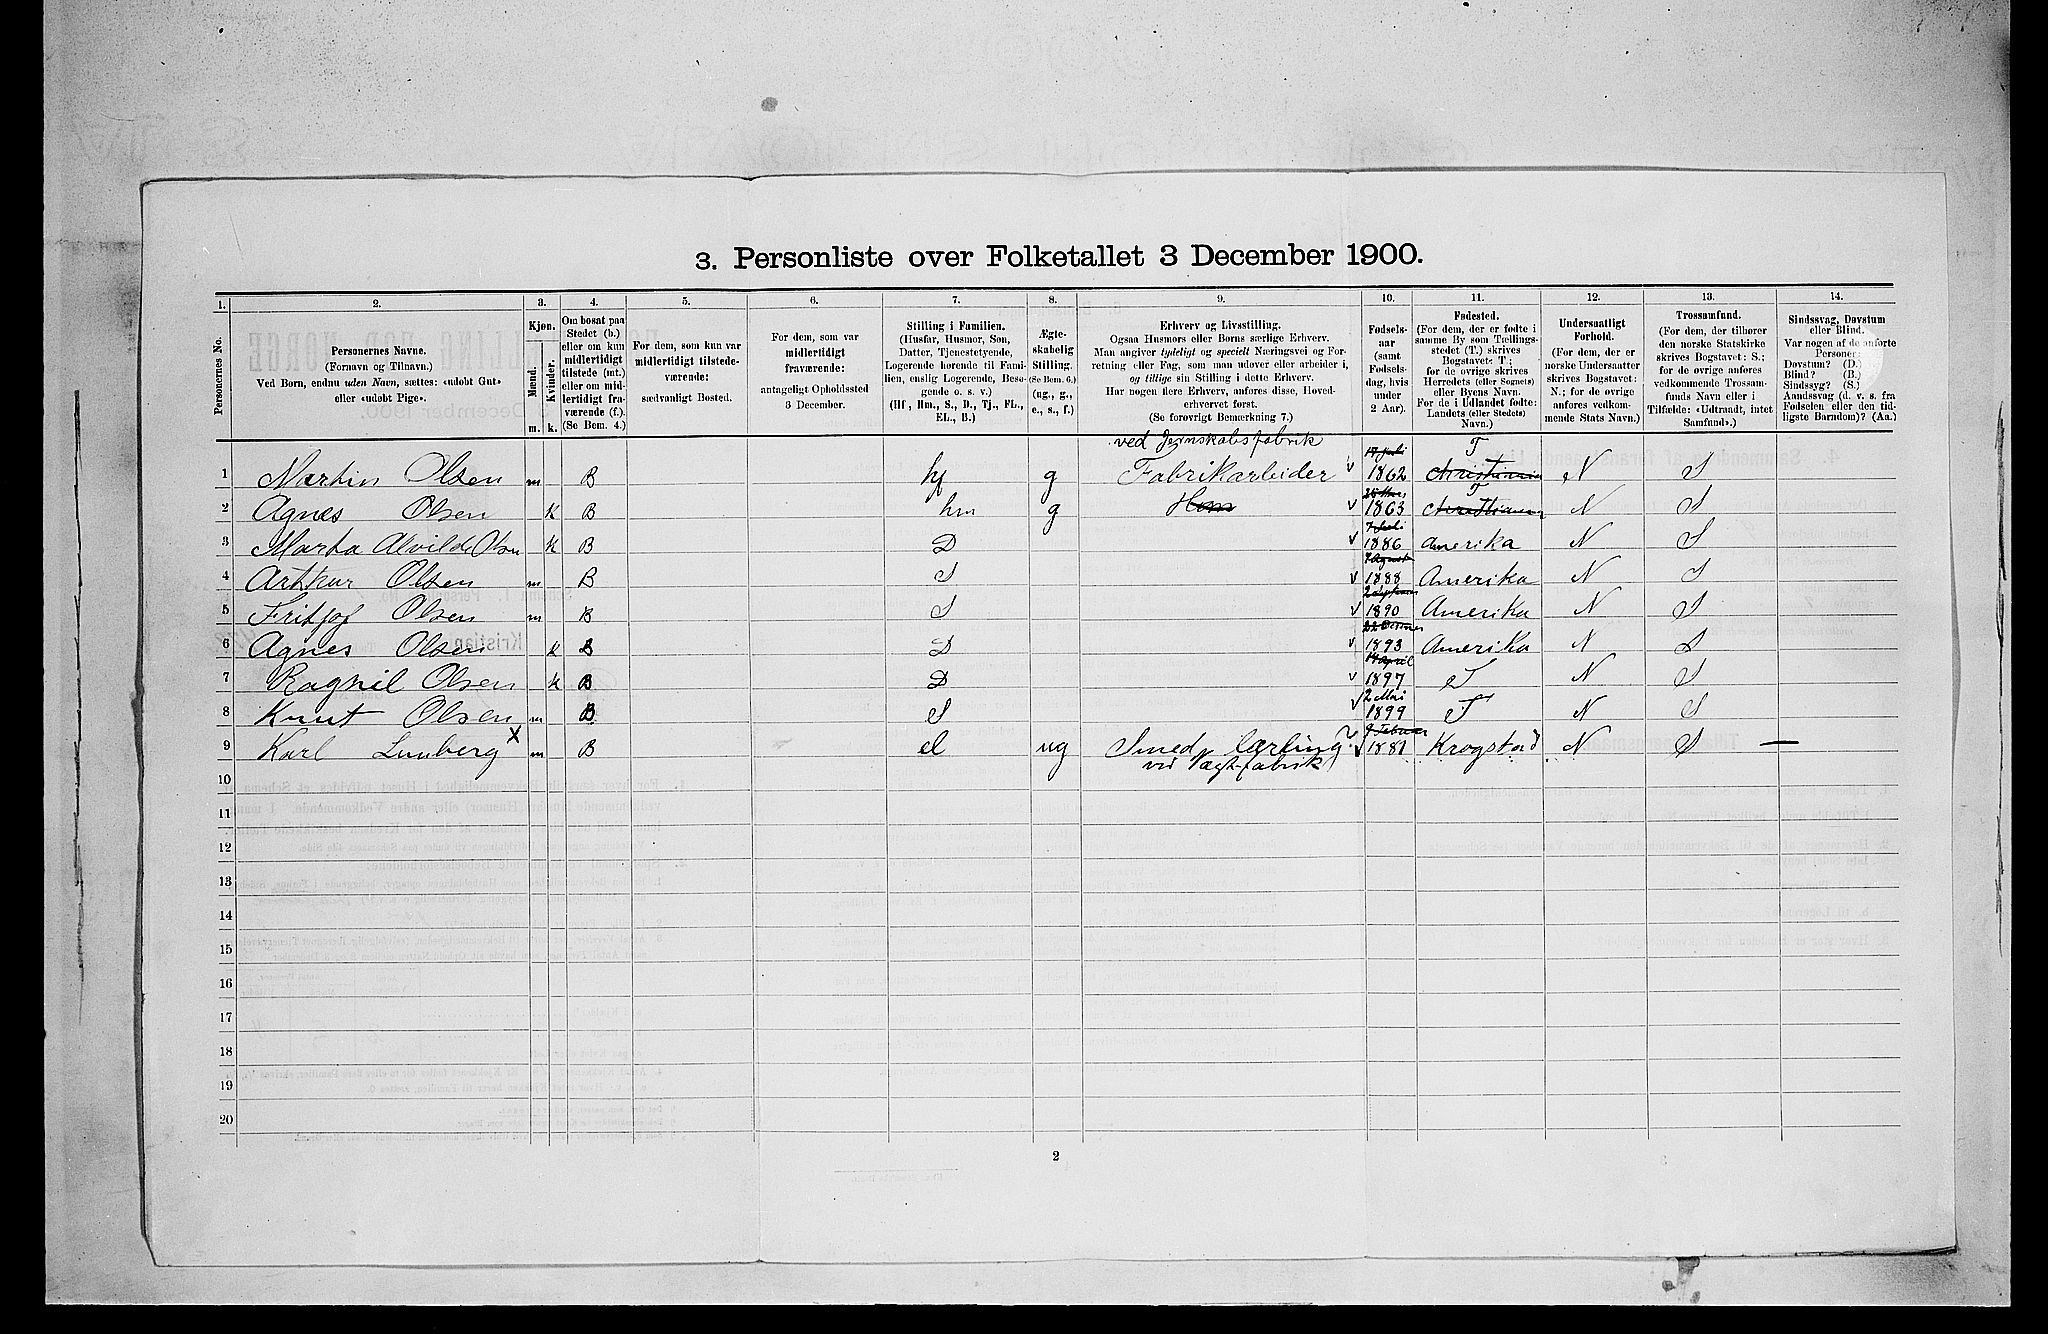 3. Personliste over Folketallet 3 December 1900.
1. 2. 3. 4. 5. 6. 7. 8. 9. 10. 11. 12. 13. 14.
Personernes No.
Personernes Navne.
(Fornavn og Tilnavn.)
Ved Børn, endnu uden Navn, sættes: «udøbt Gut»
eller «udøbt Pige».
Kjøn.
Mænd.
Kvinder.
m. k.
Om bosat paa
Stedet (b.)
eller om kun
midlertidigt
tilstede (mt.)
eller om mid-
lertidigt fra-
værende (f.).
(Se Bem. 4.)
For dem, som kun var
midlertidigt tilstede-
værende:
sædvanligt Bosted.
For dem, som var
midlertidigt
fraværende:
antageligt Opholdssted
3 December.
Stilling i Familien.
(Husfar, Husmor, Søn,
Datter, Tjenestetyende,
Logerende hørende til Fami-
lien, enslig Logerende, Besø-
gende o. s. v.)
(Hf, Hm., S., D., Tj., FL.,
EL., B.)
Ægte-
skabelig
Stilling.
(Se Bem. 6.)
(ug., g.,
e., s., f.)
Erhverv og Livsstilling.
Ogsaa Husmors eller Børns særlige Erhverv.
Man angiver tydeligt og specielt Næringsvei og For-
retning eller Fag, som man udøver eller arbeider i,
og tillige sin Stilling i dette Erhverv.
Har nogen flere Erhverv, anføres disse, Hoved-
erhvervet først.
(Se forøvrigt Bemærkning 7.)
Fødsels-
aar
(samt
Fødsels-
dag, hvis
under
2 Aar).
Fødested.
(For dem, der er fødte i
samme By som Tællings-
stedet (T.) skrives
Bogstavet: T.;
for de øvrige skrives
Herredets (eller Sognets)
eller Byens Navn.
For de i Udlandet fødte:
Landets (eller Stedets)
Navn.)
Undersaatligt
Forhold.
(For dem, der er
norske Undersaatter
skrives Bogstavet:
N.; for de øvrige
anføres vedkom-
mende Stats Navn.)
Trossamfund.
(For dem, der tilhører
den norske Statskirke
skrives Bogstavet: S.;
for de øvrige anføres
vedkommende Trossam-
funds Navn eller i
Tilfælde: «Udtraadt, intet
Samfund».)
Sindssvag, Døvstum
eller Blind.
Var nogen af de anførte
Personer:
Døvstum? (D.)
Blind? (B.)
Sindssyg? (S.)
Aandssvag (d. v. s. fra
Fødselen eller den tid-
ligste Barndom)? (Aa.)
ved Jernskabsfabrik
1 Martin Olsen m B hf g Fabrikarbeider 17 Juli 1862 T Christiania N S
2 Agnes Olsen k B hm g Hm 1863 T Christiania N S
3 Marta Alvilde Olsen k B D 7 Juli 1886 Amerika N S
4 Arthur Olsen m B S 1888 Amerika N S
5 Fritjof Olsen m B S 1890 Amerika N S
6 Agnes Olsen k B D 1893 Amerika N S
7 Ragnil Olsen k B D 14 April 1897 T N S
8 Knut Olsen m B S 2 Mai 1899 T N S
9 Karl Lunberg X m B el ug Smed lærling 1881 Krogstad N S —
ved Vægtfabrik
10
11
12
13
14
15
16
17
18
19
20
2